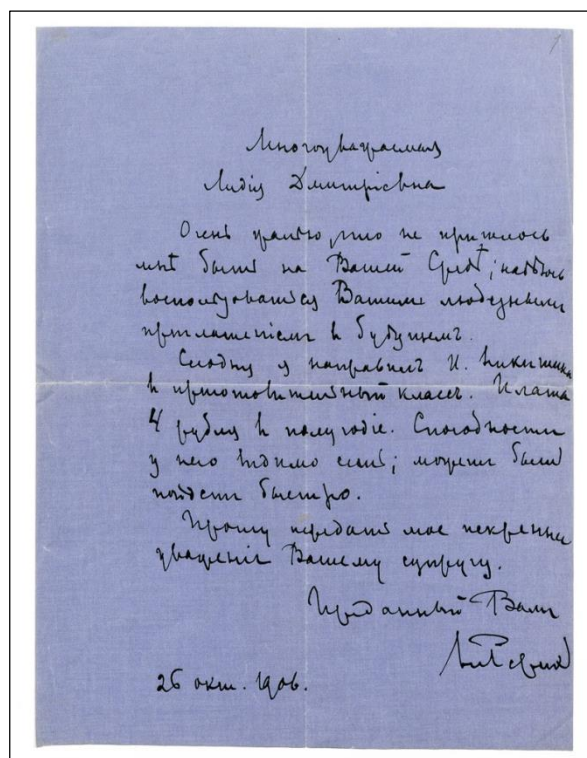 Многоуважаемая
Лидія Дмитріевна
Очень жалѣю, что не пришлось
мнѣ быть на Вашей Средѣ; надѣюсь
воспользоваться Вашимъ любезнымъ
приглашеніемъ въ будущемъ.
Сегодня я направилъ И. Никитина
въ приготовительный классъ. Плата
4 рубля въ полугодіе. Способности
у него видимо есть; можетъ быть
пойдетъ быстро.
Прошу передать мое искреннее
уваженіе Вашему супругу.
Преданный Вамъ
26 окт. 1906.